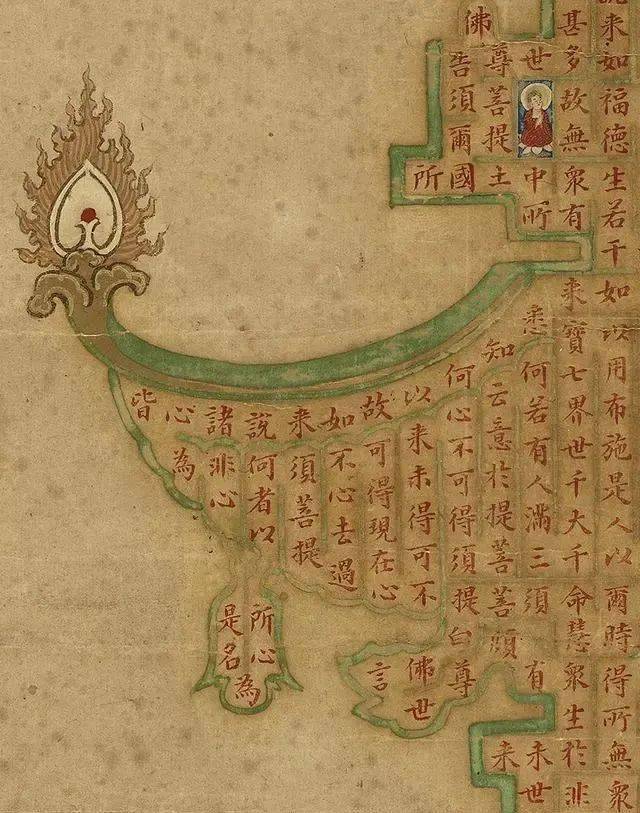 来如福德生若干如以用布施是人以爾時得所無眾
甚多故無眾有来寶七界世千大千命慧眾生於非
世中所悉何若有人滿三須有未世
佛尊菩提土知云意於提菩菩須来
告須爾國何心不可得須提白尊
所以来未得可不佛世
故可得現在心言
如不心去過
来須菩提
說何者以所心為
諸非心是名
心為
皆